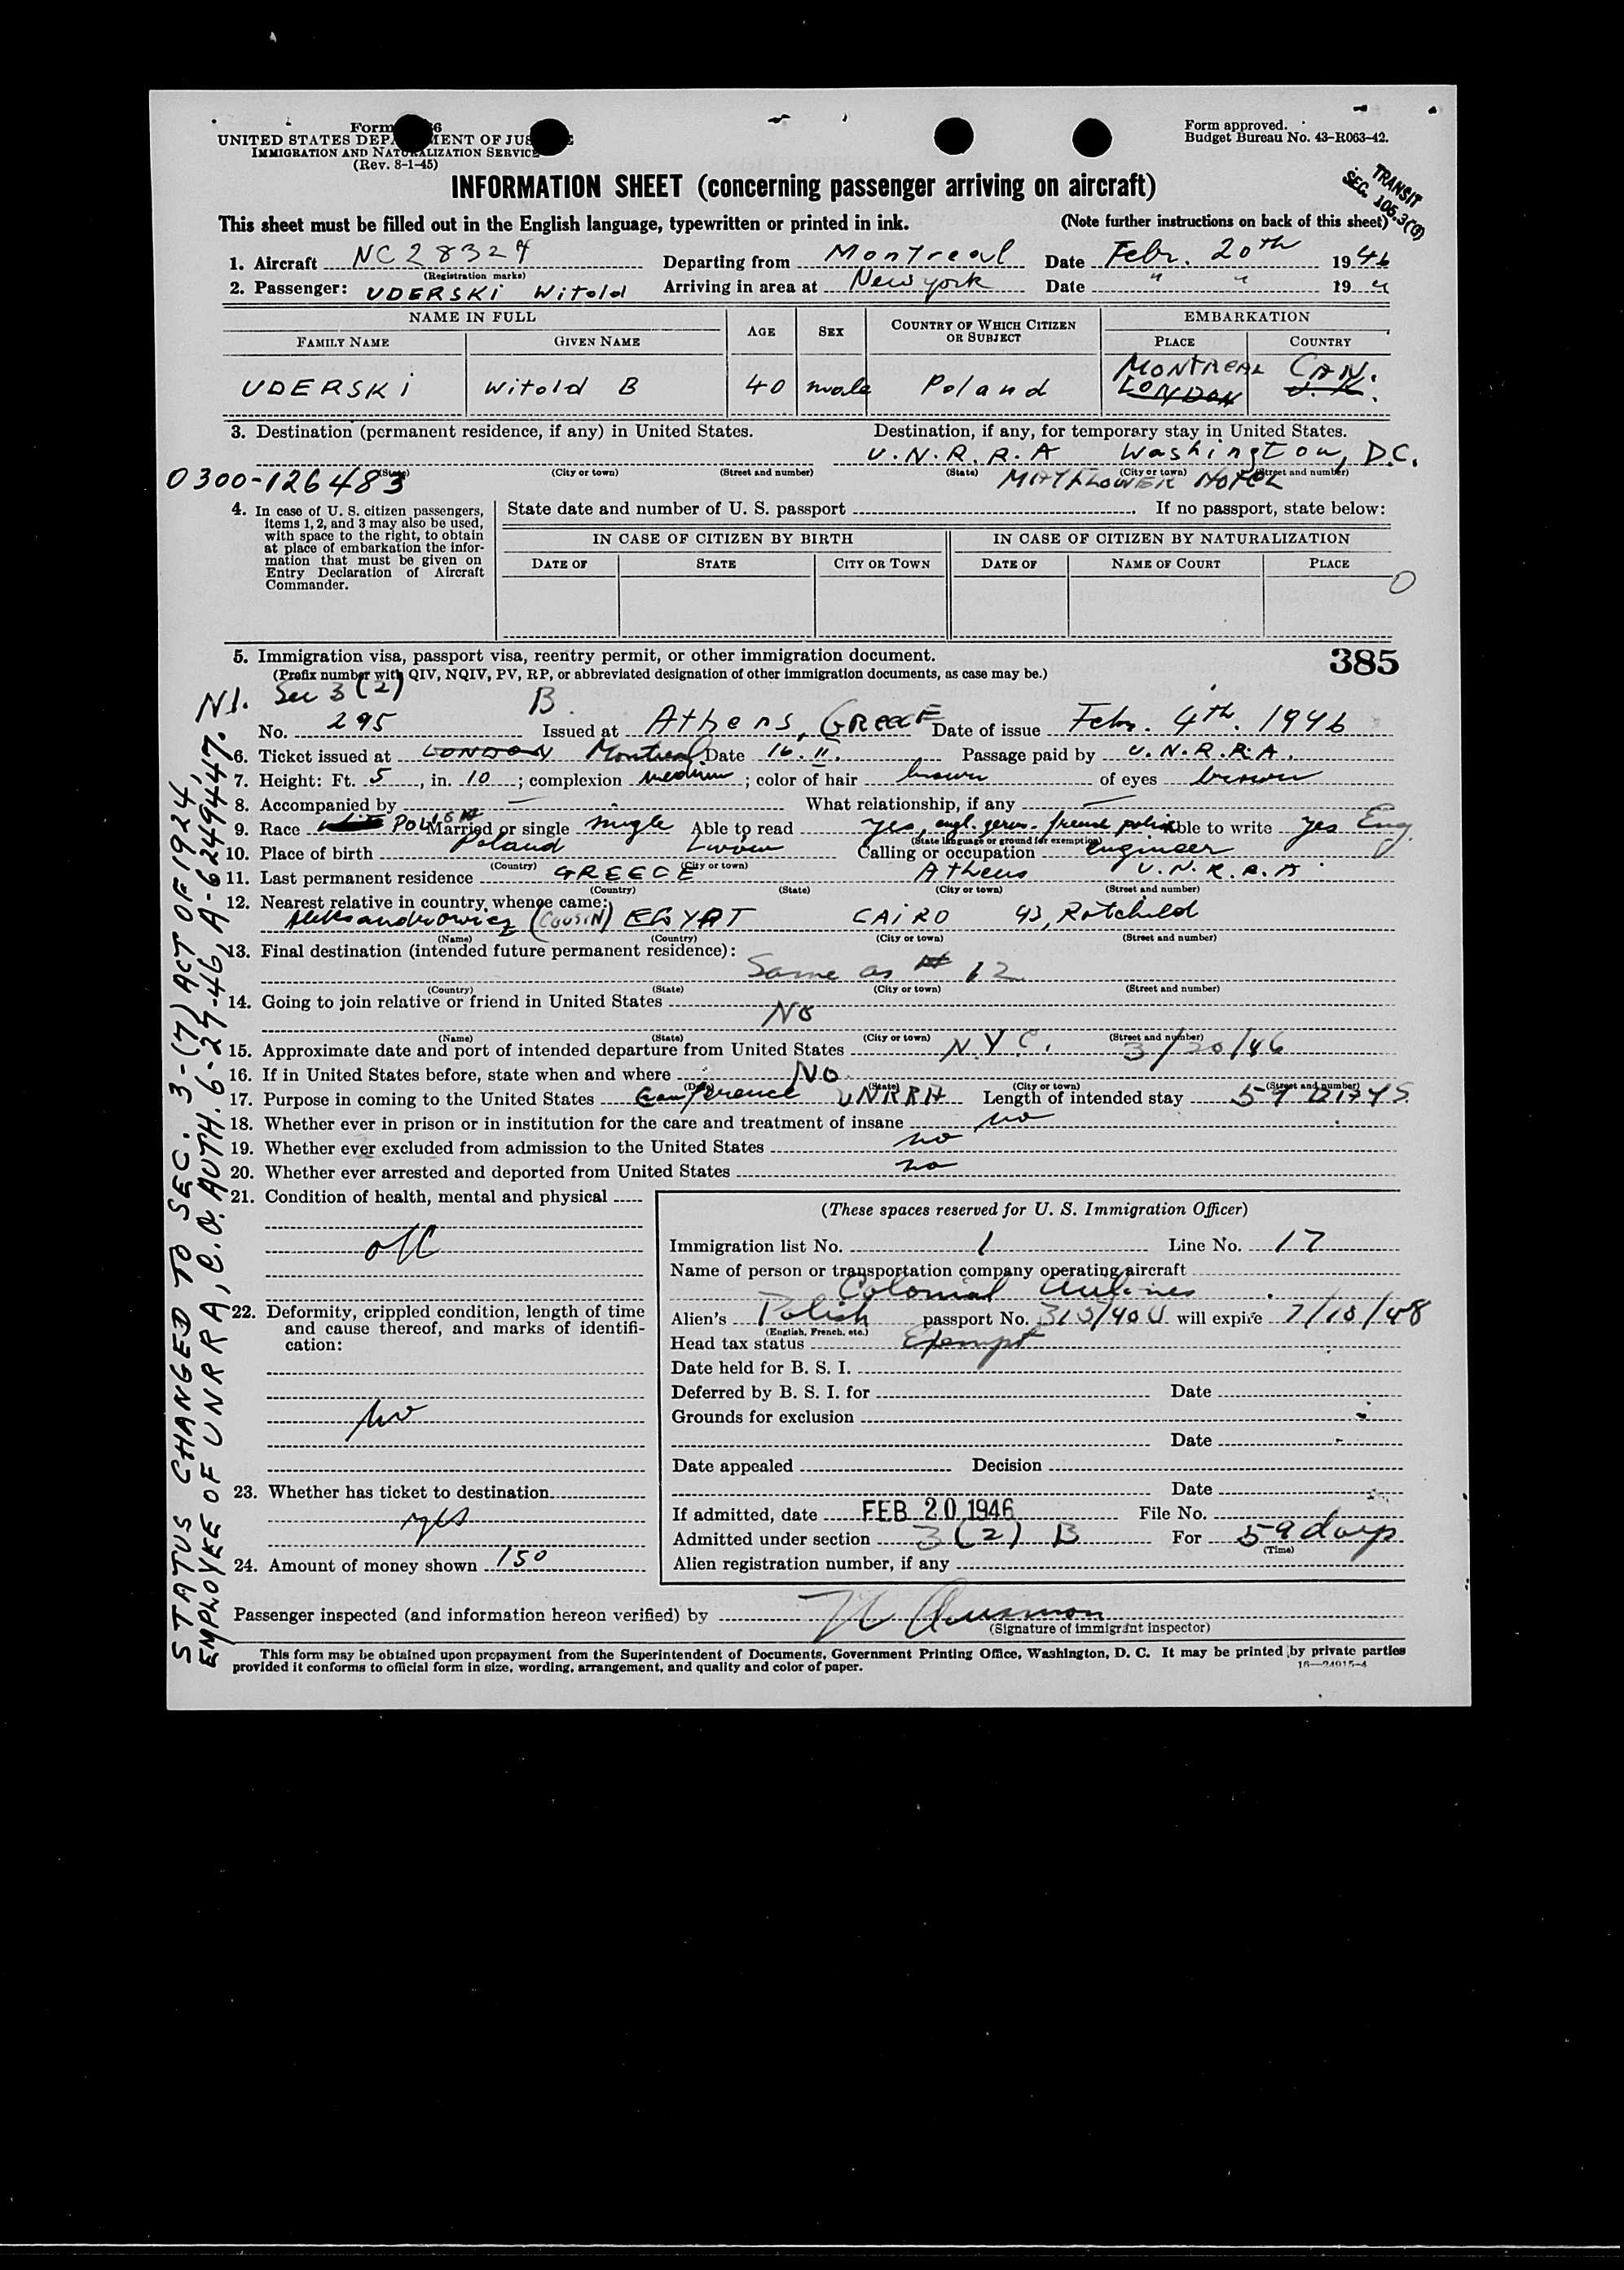 Form 6
UNITED STATES DEP MENT OF JUS
IMMIGRATION AND NATURALIZATION SERVICE
(Rev. 8-1-45)
Form approved.
Budget Bureau No. 43-R063-42.
TRANSIT
SEC. 105.3(9)
INFORMATION SHEET (concerning passenger arriving on aircraft)
This sheet must be filled out in the English language, typewritten or printed in ink. (Note further instructions on back of this sheet)
1. Aircraft NC 28324 Departing from Montreal Date Febr. 20th 1946
(Registration marks)
2. Passenger: UDERSKI Witold Arriving in area at New york Date " " 19 "
NAME IN FULL AGE SEX COUNTRY OF WHICH CITIZEN OR SUBJECT EMBARKATION
FAMILY NAME GIVEN NAME PLACE COUNTRY
MONTREAL CAN.
UDERSKI Witold B 40 male Poland LONDON U.K.
3. Destination (permanent residence, if any) in United States. Destination, if any, for temporary stay in United States.
U.N.R.R.A Washington, D.C.
(State) (City or town) (Street and number) (State) (City or town) (Street and number)
0300-126483 MAYFLOWER HOTEL
4. In case of U. S. citizen passengers, items 1, 2, and 3 may also be used, with space to the right, to obtain at place of embarkation the information that must be given on Entry Declaration of Aircraft Commander.
State date and number of U. S. passport . If no passport, state below:
IN CASE OF CITIZEN BY BIRTH IN CASE OF CITIZEN BY NATURALIZATION
DATE OF STATE CITY OR TOWN DATE OF NAME OF COURT PLACE
0
5. Immigration visa, passport visa, reentry permit, or other immigration document. 385
(Prefix number with QIV, NQIV, PV, RP, or abbreviated designation of other immigration documents, as case may be.)
NI. Sec 3 (2) B.
No. 295 Issued at Athens, GREECE Date of issue Febr. 4th. 1946
6. Ticket issued at LONDON Montreal Date 16.II. Passage paid by U.N.R.R.A.
7. Height: Ft. 5, in. 10; complexion medium; color of hair brown of eyes brown
8. Accompanied by — What relationship, if any —
9. Race POLISH Married or single single Able to read yes, engl. germ. french polish Able to write yes Eng.
(State language or ground for exemption)
10. Place of birth Poland Lwow Calling or occupation engineer
(Country) (City or town)
11. Last permanent residence GREECE Athens U.N.R.R.A
(Country) (State) (City or town) (Street and number)
12. Nearest relative in country whence came:
Aleksandrowicz (COUSIN) EGYPT CAIRO 43, Rotchild
(Name) (Country) (City or town) (Street and number)
13. Final destination (intended future permanent residence):
Same as # 12
(Country) (State) (City or town) (Street and number)
14. Going to join relative or friend in United States
No
(Name) (State) (City or town) (Street and number)
15. Approximate date and port of intended departure from United States N.Y.C. 3/20/46
16. If in United States before, state when and where No.
(Date) (State) (City or town) (Street and number)
17. Purpose in coming to the United States Conference UNRRA Length of intended stay 59 DAYS.
18. Whether ever in prison or in institution for the care and treatment of insane no
19. Whether ever excluded from admission to the United States no
20. Whether ever arrested and deported from United States no
21. Condition of health, mental and physical
22. Deformity, crippled condition, length of time and cause thereof, and marks of identification:
no
23. Whether has ticket to destination
yes
24. Amount of money shown 150
(These spaces reserved for U. S. Immigration Officer)
Immigration list No. 1 Line No. 17
Name of person or transportation company operating aircraft
Colonial Airlines
Alien's Polish passport No. will expire 7/10/48
(English, French, etc.)
Head tax status Exempt
Date held for B. S. I.
Deferred by B. S. I. for Date
Grounds for exclusion
Date
Date appealed Decision
Date
If admitted, date FEB 20 1946 File No.
Admitted under section 3 (2) B For 59 days
(Time)
Alien registration number, if any
Passenger inspected (and information hereon verified) by
(Signature of immigrant inspector)
This form may be obtained upon prepayment from the Superintendent of Documents, Government Printing Office, Washington, D. C. It may be printed by private parties
provided it conforms to official form in size, wording, arrangement, and quality and color of paper. 16—24915-4
STATUS CHANGED TO SEC. 3-(7) ACT OF 1924,
EMPLOYEE OF UNRRA, C.O. AUTH. 6-27-46, A-6249447.